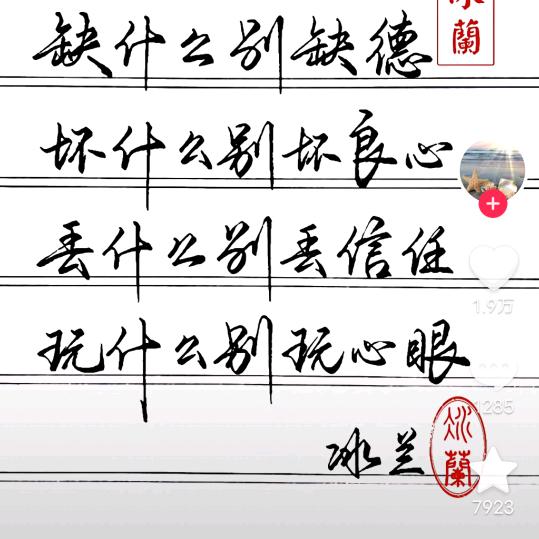 冰蘭
缺什么别缺德
坏什么别坏良心
丢什么别丢信任
1.9万
玩什么别玩心眼
1285
冰兰
冰蘭
7923